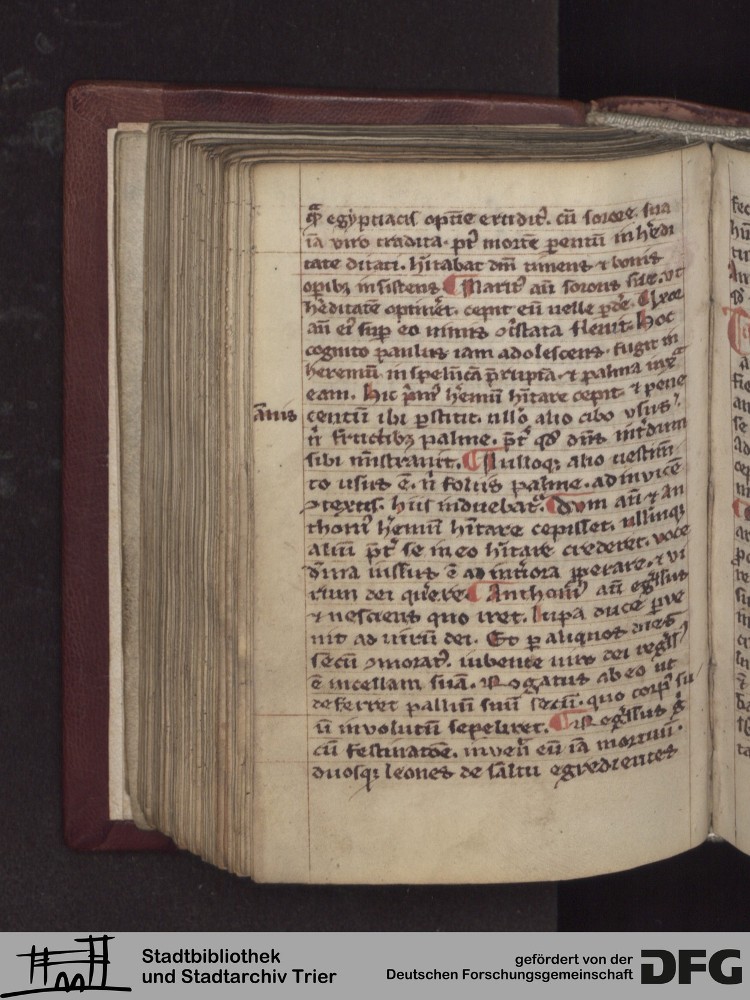 q̃ egyptiacis optīe erudit᷒. cū sorore sua
iā viro tradita. pt᷒ mortē parentū in hedi
tate ditati. hītabat dm̄ timens ⁊ bonis
opib᷒ insistens ¶ Marit᷒ aū sororis sue. ut
heditatē optinet. cepit eū uelle pdē. ¶ Uxor
aū ei᷒ sup eo nimis ꝯtstata fleuit. hoc
cognito paulus iam adolescens. fugit in
heremū. in spelūcā p̄ruptā. ⁊ palma iux̄
eam. hic p̄m᷒ hemū hītare cepit. ⁊ pene
annis
centū ibi pstitit. nullo alio cibo usus
n̄ fructib᷒ palme. pt᷒ qd̄ dn̄s int̄dum
sibi ministrauit. ¶ Nulloqꝫ alio uestim̄
to usus ē. n̄ foliis palme. ad inuicē
ꝯtextis. hiis induebat᷒. ¶ Dum aū ⁊ An
thoni᷒ hemū hītare cepisset. nullūqꝫ
aliū pt᷒ se in eo hītare crederet. uoce
diuina iussus ē ad intiora pperare. ⁊ vi
rum dei querē ¶ Anthoni᷒ aū eḡssus
⁊ nesciens quo iret. lupa duce pue
nit ad uirū dei. Et p aliquos dies
secū ꝯmorat᷒. iubente uiro dei regss᷒
ē in cellam suā. Rogatus ab eo ut
deferret palliū suū secū. quo corp᷒ su
ū inuolutū sepeliret. ¶ Regssus g̊
cū festinatōe. inuenit eū iā mortuū.
duosqꝫ leones de saltu egredientes
Stadtbibliothek
und Stadtarchiv Trier
gefördert von der
Deutschen Forschungsgemeinschaft
DFG